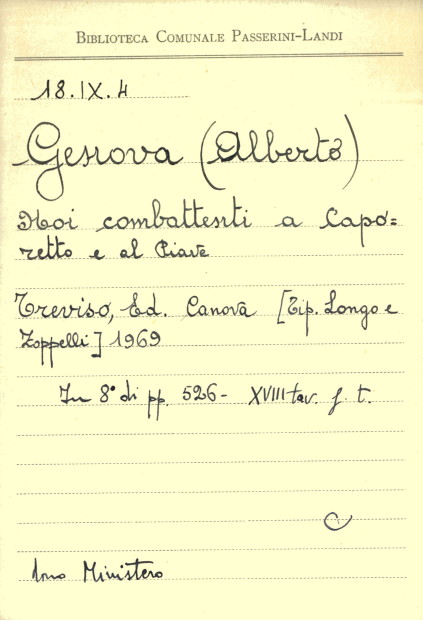 BIBLIOTECA COMUNALE PASSERINI-LANDI
18.IX.4
Genova (Alberto)
Noi combattenti a Capo=
retto e al Piave
Treviso, Ed. Canova [Tip. Longo e
Zoppelli] 1969
In 8° di pp. 526- XVIII tav. f. t.
C
dono Ministero